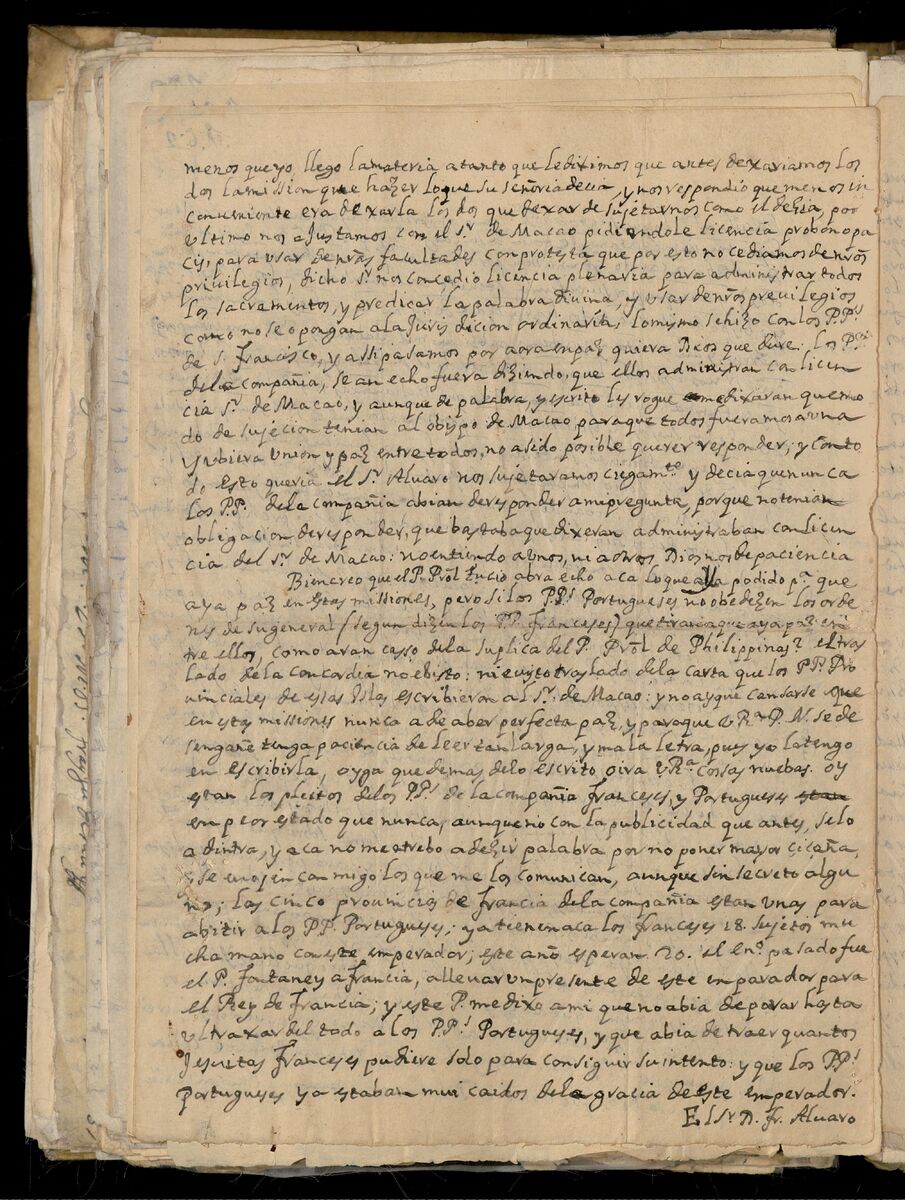 menos que yo, llego la materia a tanto que le diximos que antes dexariamos los
dos la mission que hazer lo que su señoria decia, y nos respondio que menos in
conueniente era dexarla los dos que dexar de sujetarnos como el dezia, por
ultimo nos ajustamos con el Sr. de Macao pidiendole licencia pro bono pa
cis, para usar de nras facultades con protesta que por esto no cediamos de nros
privilegios, dicho Sr. nos concedio licencia plenaria para administrar todos
los sacramentos, y predicar la palabra divina, y usar de nros previlegios
como no se opongan a la Juris dicion ordinaria, lo mismo se hizo con los P.Ps
de S. Francisco, y assi pasamos por aora en paz quiera Dios que dure: los P.Ps
de la Compañia, se an echo fuera diziendo, que ellos administran con licen
cia Sr. de Macao, y aunque de palabra, y escrito les rogue me dixaran que mo
do de sujecion tenian al obispo de Macao para que todos fueramos a una
y ubiera union y paz entre todos, no a sido posible querer responder; y con to
do esto queria el Sr. Alvaro nos sujetaramos ciegamte. y decia que nunca
los P.P. de la compañia abian de responder a mi pregunta, porque no tenian
obligacion de responder, que bastaba que dixeran administraban con licen
cia del Sr. de Macao: no entiendo a unos, ni a otros, Dios nos de paciencia
Bien creo que el P. Prol. Lucio abra echo aca lo que alla podido pa. que
aya paz en estas missiones, pero si los P.Ps Portugueses no obedezen los orde
nes de su general (segun dizen los P.P. franceses) que tiran a que aya paz en
tre ellos, como aran casso de la suplica del P. Prol de Philippinas? el tras
lado de la concordia no e bisto: ni e uisto traslado de la carta que los P.Ps Pro
uinciales de esas Islas escribieron al Sr. de Macao: y no ay que cansarse que
en estas missiones nunca a de aber perfecta paz, y para que V Ra P. N. se de
sengañe tenga paciencia de leer tan larga, y mala letra, pues yo la tengo
en escribirla, oyga que demas de lo escrito oira V Ra. cossas nuebas. oy
estan los pleitos de los P.Ps de la compañia franceses, y Portugueses estan
en peor estado que nunca, aunque no con la publicidad que antes, solo
adintra, y aca no me atrebo a dezir palabra por no poner mayor ciçaña,
y se enojen con migo los que me los comunican, aunque sin secreto algu
no; las cinco provincias de francia de la compañia estan unas para
abitir a los P.P. Portugueses; ya tienen aca los franceses 18. sujetos mu
cha mano con este emperador; este año esperan 20. el eno. pasado fue
el P. Fontaney a francia, a lleuar un presente de este enparador para
el Rey de francia; y este P. me dixo a mi que no abia de porar hasta
ultraxar del todo a los P.Ps Portugueses, y que abia de traer quantos
Jesuitas franceses pudiere solo para consiguir su intento: y que los P.Ps
portugueses ya estaban mui caidos de la gracia de este emperador.
El Sr. D. fr. Alvaro